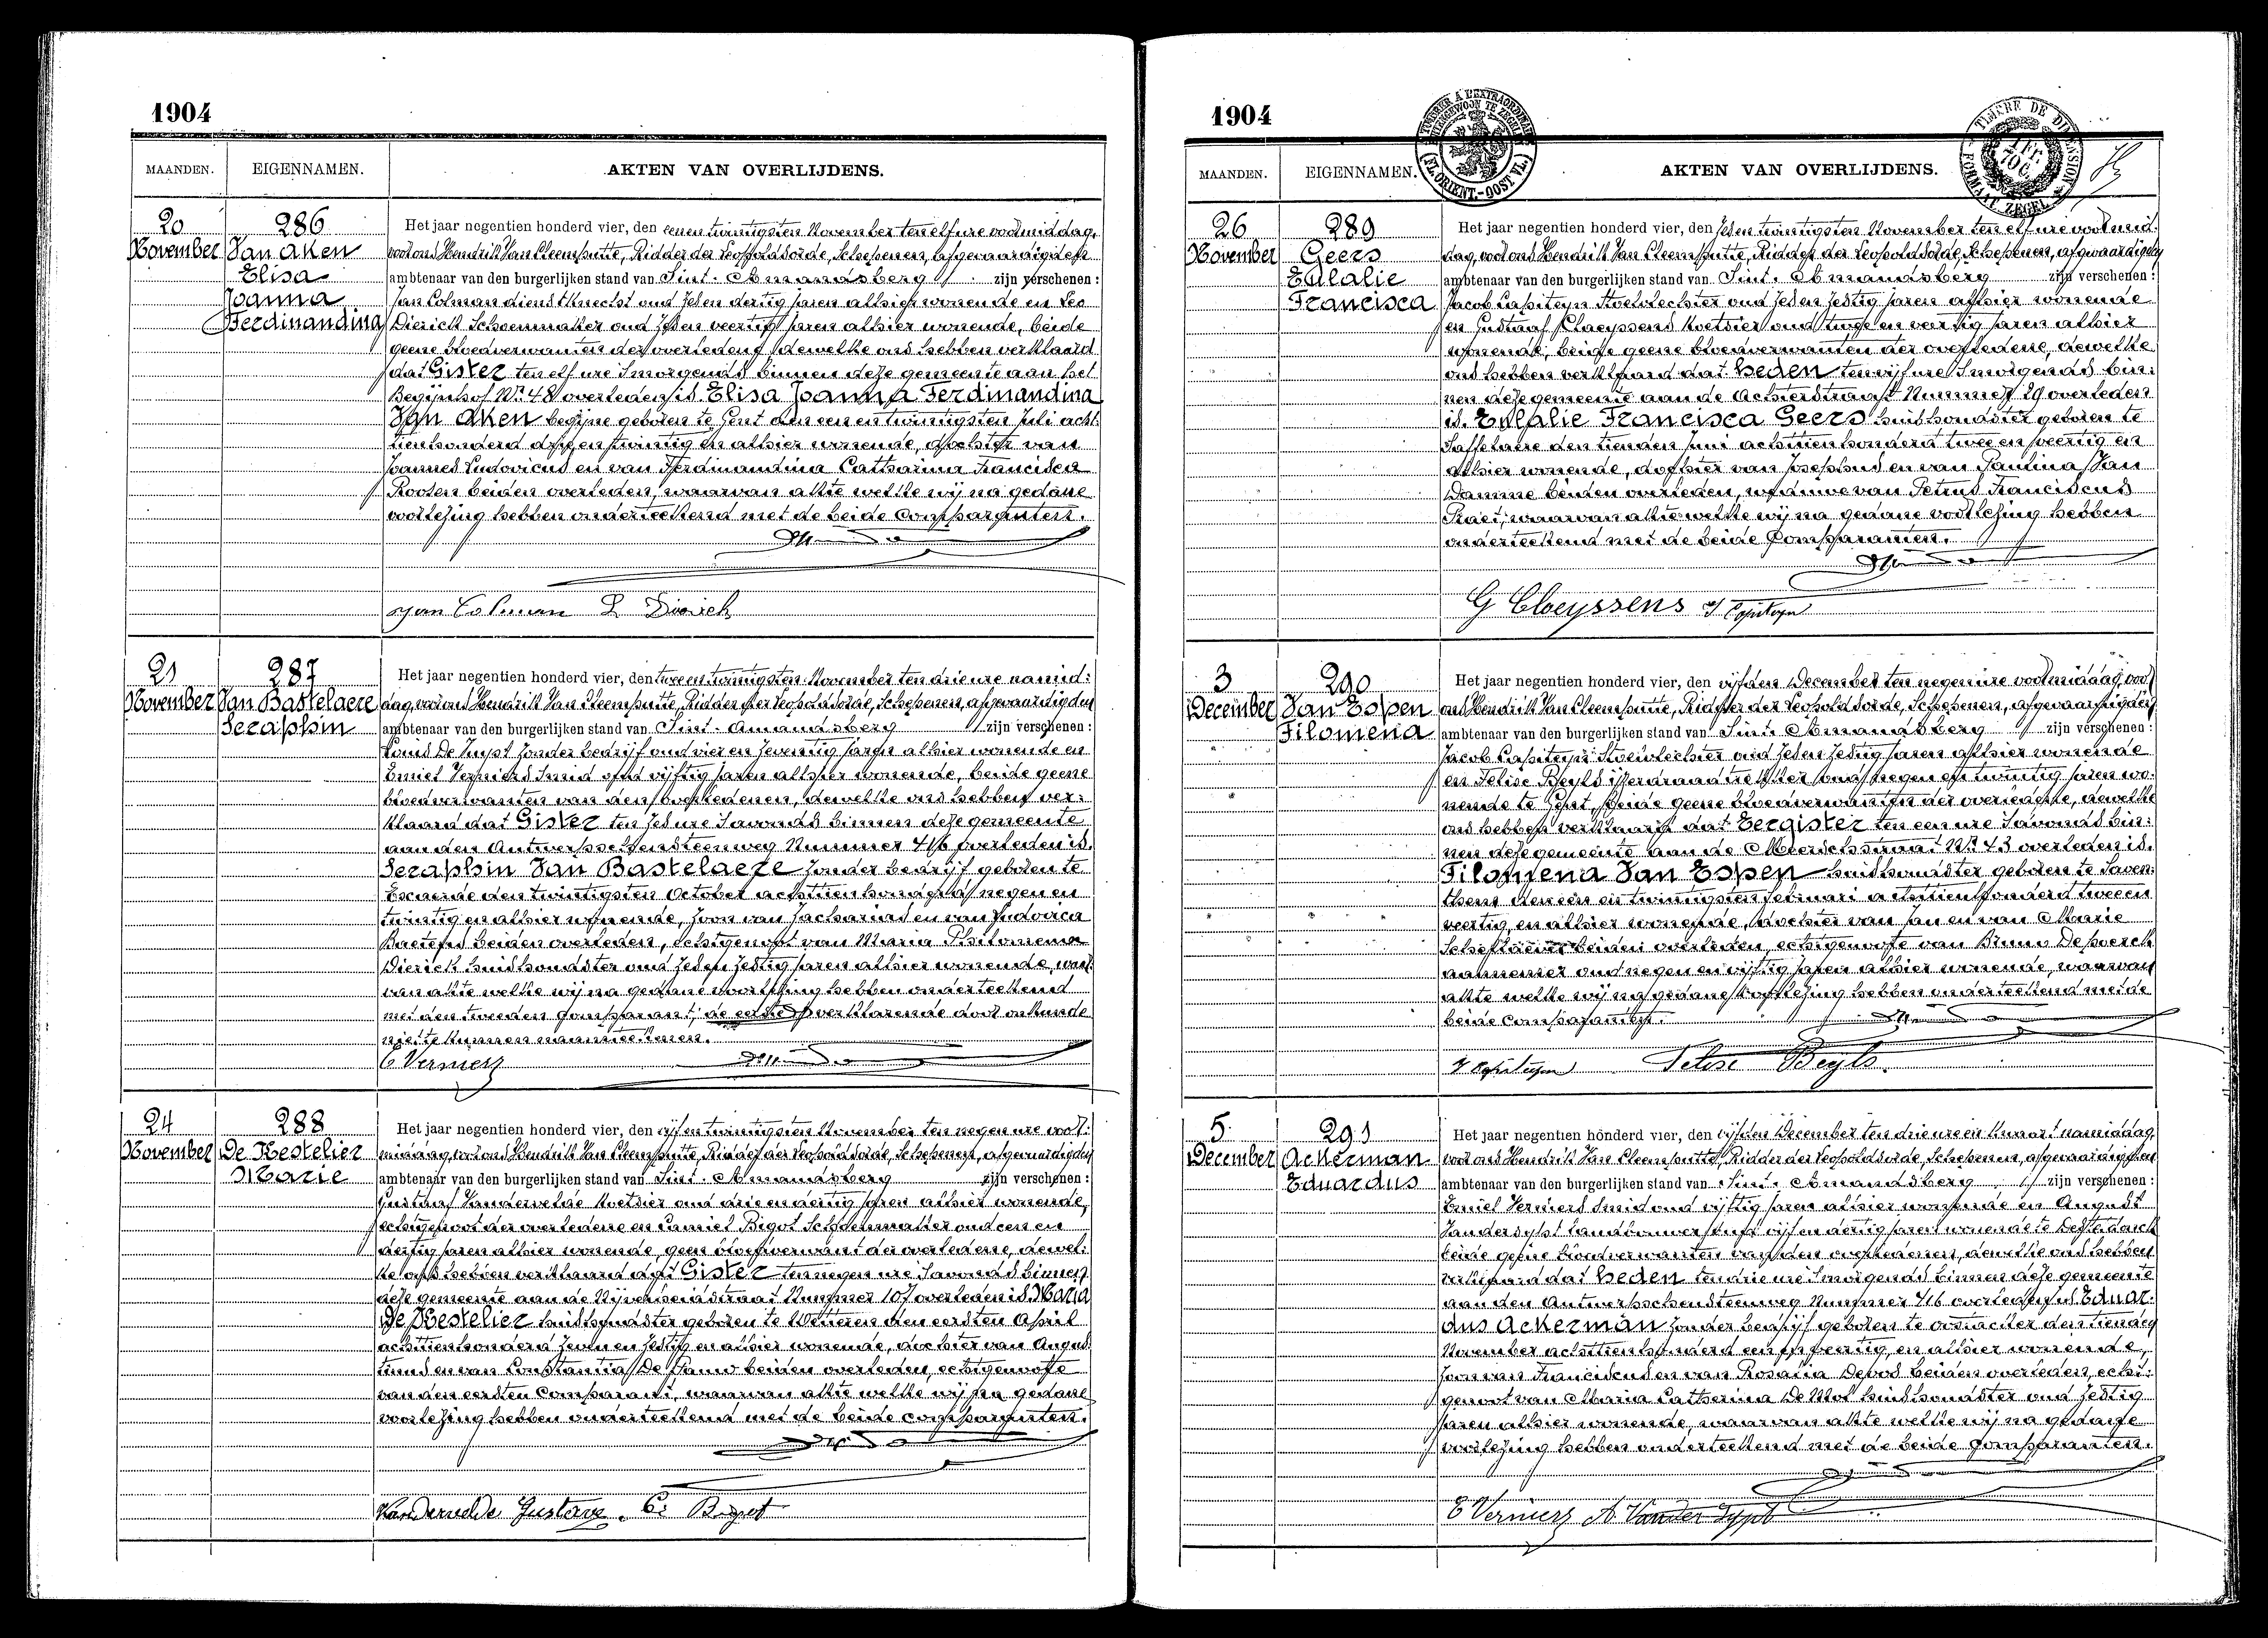 1904
MAANDEN. EIGENNAMEN. AKTEN VAN OVERLIJDENS.
20 November
286
Van Aken
Elisa
Joanna
Ferdinandina
Het jaar negentien honderd vier, den eenentwintigsten November ten elf ure voormiddag,
voor ons Hendrik Van Cleemputte, Ridder der Leopoldsorde, Schepenen, afgevaardigden
ambtenaar van den burgerlijken stand van Sint-Amandsberg zijn verschenen:
Jan Colman dienstknecht oud zesen dertig jaren alhier wonende en Leo
Dierick Schoenmaker oud zesen veertig jaren alhier wonende, beide
geene bloedverwanten der overledene, dewelke ons hebben verklaard
dat Gister ten elf ure smorgends binnen deze gemeente aan het
Begijnhof Nr 48 overleden is Elisa Joanna Ferdinandina
Van Aken begijne geboren te Gent den een en twintigsten Juli acht-
tienhonderd drij en twintig en alhier wonende, dochter van
Joannes Ludovicus en van Ferdinandina Catharina Francisca
Rooten beiden overleden, waarvan akte welke wij na gedane
voorlezing hebben onderteekend met de beide Comparanten.
Jan Colman L Dierick
21 November
287
Van Bastelaere
Seraphin
Het jaar negentien honderd vier, den tweeentwintigsten November ten drie ure namid-
dag, voor ons Hendrik Van Cleemputte, Ridder der Leopoldsorde, Schepenen, afgevaardigden
ambtenaar van den burgerlijken stand van Sint-Amandsberg zijn verschenen:
Louis De zonder bedrijf oud vier en zeventig jaren alhier wonende en
Emiel Verniers Smid oud vijftig jaren alhier wonende, beide geene
bloedverwanten van den overledenen, dewelke ons hebben ver-
klaard dat Gister ten zes ure savonds binnen deze gemeente
aan den Antwerpschensteenweg Nummer 416 overleden is
Seraphin Van Bastelaere zonder bedrijf geboren te
Exaerde den twintigsten October achttienhonderd negen en
twintig en alhier wonende, zoon van Zacharias en van Ludovica
Baetens beiden overleden, echtgenoot van Maria Philomena
Dierick huishoudster oud zesen zestig jaren alhier wonende, waar-
van akte welke wij na gedane voorlezing hebben onderteekend
met den tweeden Comparant, de eerste verklarende door onkunde
niet te kunnen naamteekenen.
E Verniers
24 November
288
De Mestelier
Marie
Het jaar negentien honderd vier, den vijfentwintigsten November ten negen ure voor-
middag, voor ons Hendrik Van Cleemputte, Ridder der Leopoldsorde, Schepenen, afgevaardigden
ambtenaar van den burgerlijken stand van Sint-Amandsberg zijn verschenen:
Gustaaf Vandervelde Koetsier oud drie en dertig jaren alhier wonende,
echtgenoot der overledene en Camiel Bigot Schoenmaker oud een en
dertig jaren alhier wonende, geen bloedverwant der overledene, dewel-
ke ons hebben verklaard dat Gister ten negen ure savonds binnen
deze gemeente aan de Nijverheidstraat Nummer 107 overleden is Maria
De Mestelier huishoudster geboren te Wetteren den eersten April
achttienhonderd zeven en zestig en alhier wonende, dochter van Augus-
tinus en van Constantia De beiden overleden, echtgenoote
van den eersten Comparant, waarvan akte welke wij na gedane
voorlezing hebben onderteekend met de beide comparanten.
Vandervelde Gustave. C. Bigot
1904
MAANDEN. EIGENNAMEN. AKTEN VAN OVERLIJDENS.
26 November
289
Geers
Eulalie
Francisca
Het jaar negentien honderd vier, den zesentwintigsten November ten elf ure voormid-
dag, voor ons Hendrik Van Cleemputte, Ridder der Leopoldsorde, Schepenen, afgevaardigden
ambtenaar van den burgerlijken stand van Sint-Amandsberg zijn verschenen:
Jacob Capiteyn Stoelvlechter oud zesen zestig jaren alhier wonende
en Gustaaf Claeyssens Koetsier oud twee en veertig jaren alhier
wonende, beide geene bloedverwanten der overledene, dewelke
ons hebben verklaard dat heden ten vijf ure smorgends bin-
nen deze gemeente aan de Achterstraat Nummer 29 overleden
is Eulalie Francisca Geers huishoudster geboren te
Saffelaere den tienden Juni achttienhonderd twee en veertig en
alhier wonende, dochter van Josephus en van Paulina Van
Damme beiden overleden, weduwe van Petrus Franciscus
waarvan akte welke wij na gedane voorlezing hebben
onderteekend met de beide Comparanten.
G Claeyssens J Capiteyn
3 December
290
Van Espen
Filomena
Het jaar negentien honderd vier, den vijfden December ten negen ure voormiddag, voor
ons Hendrik Van Cleemputte, Ridder der Leopoldsorde, Schepenen, afgevaardigden
ambtenaar van den burgerlijken stand van Sint-Amandsberg zijn verschenen:
Jacob Capiteyn Stoelvlechter oud zesen zestig jaren alhier wonende
en Felise Beyls oud negen en twintig jaren wo-
nende te Gent, beide geene bloedverwanten der overledene, dewelke
ons hebben verklaard dat Eergister ten een ure savonds bin-
nen deze gemeente aan de Meerschstraat Nr 43 overleden is
Filomena Van Espen huishoudster geboren te Saven-
them den een en twintigsten Februari achttienhonderd twee en
veertig en alhier wonende, dochter van Jan en van Marie
beiden overleden, echtgenoote van Bruno
aannemer oud negen en vijftig jaren alhier wonende, waarvan
akte welke wij na gedane voorlezing hebben onderteekend met de
beide Comparanten.
J Capiteyn Felise Beyls.
5 December
291
Ackerman
Eduardus
Het jaar negentien honderd vier, den vijfden December ten drie ure en kwart namiddag,
voor ons Hendrik Van Cleemputte, Ridder der Leopoldsorde, Schepenen, afgevaardigden
ambtenaar van den burgerlijken stand van Sint-Amandsberg zijn verschenen:
Emiel Verniers Smid oud vijftig jaren alhier wonende en August
Vandersypt Landbouwer oud vijf en dertig jaren wonende te Destelbergen
beide geene bloedverwanten van den overledenen, dewelke ons hebben
verklaard dat heden ten drie ure smorgends binnen deze gemeente
aan den Antwerpschensteenweg Nummer 416 overleden is Eduar-
dus Ackerman zonder bedrijf geboren te Oostacker den tienden
November achttienhonderd een en veertig, en alhier wonende,
zoon van Franciscus en van Rosalia Devos beiden overleden, echt-
genoot van Maria Catherina De Mol huishoudster oud zestig
jaren alhier wonende, waarvan akte welke wij na gedane
voorlezing hebben onderteekend met de beide Comparanten.
E Verniers A. Vander Sypt